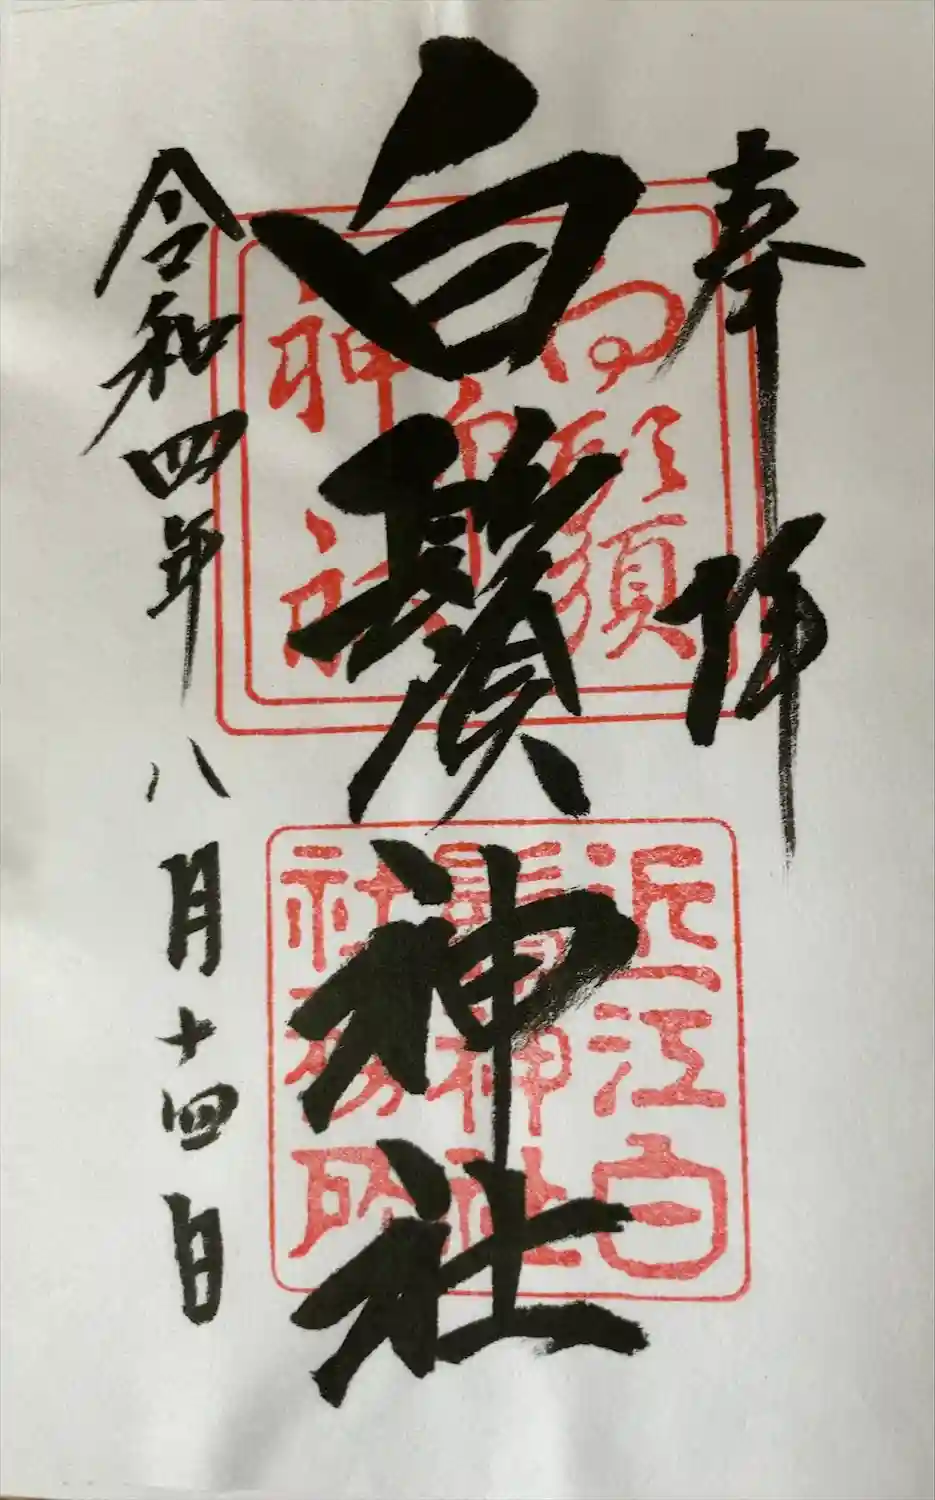 奉拝
白鬚神社
近江白
鬚神社
社務所
令和四年八月十四日